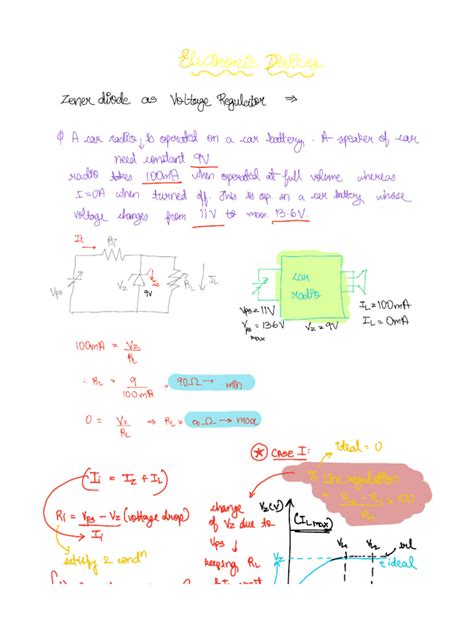 Electronic Devices
Zener diode as Voltage Regulator ⇒
Q A car radio is operated on a car battery. A speaker of car
need constant 9V
radio takes 100mA when operated at full volume whereas
I=0A when turned off. This is op on a car battery whose
voltage changes from 11V to max. 13.6V.
Ii
Ri
Vps
Vz
9V
Iz
RL
IL
car
radio
Vps=11V
Vps=13.6V
max
Vz=9V
IL=100mA
IL=0mA
100mA = Vz/RL
∴ RL = 9/100mA = 90Ω → min
0 = Vz/RL ⇒ RL = ∞Ω → max
* CASE I:
ideal = 0
Ii = Iz + IL
Ri = Vps - Vz (voltage drop)/Ii
satisfy 2 condn
change
of Vz due to
Vps ↓
keeping RL
% Line regulation
× 100
Vz(V)
(ILmax)
ideal